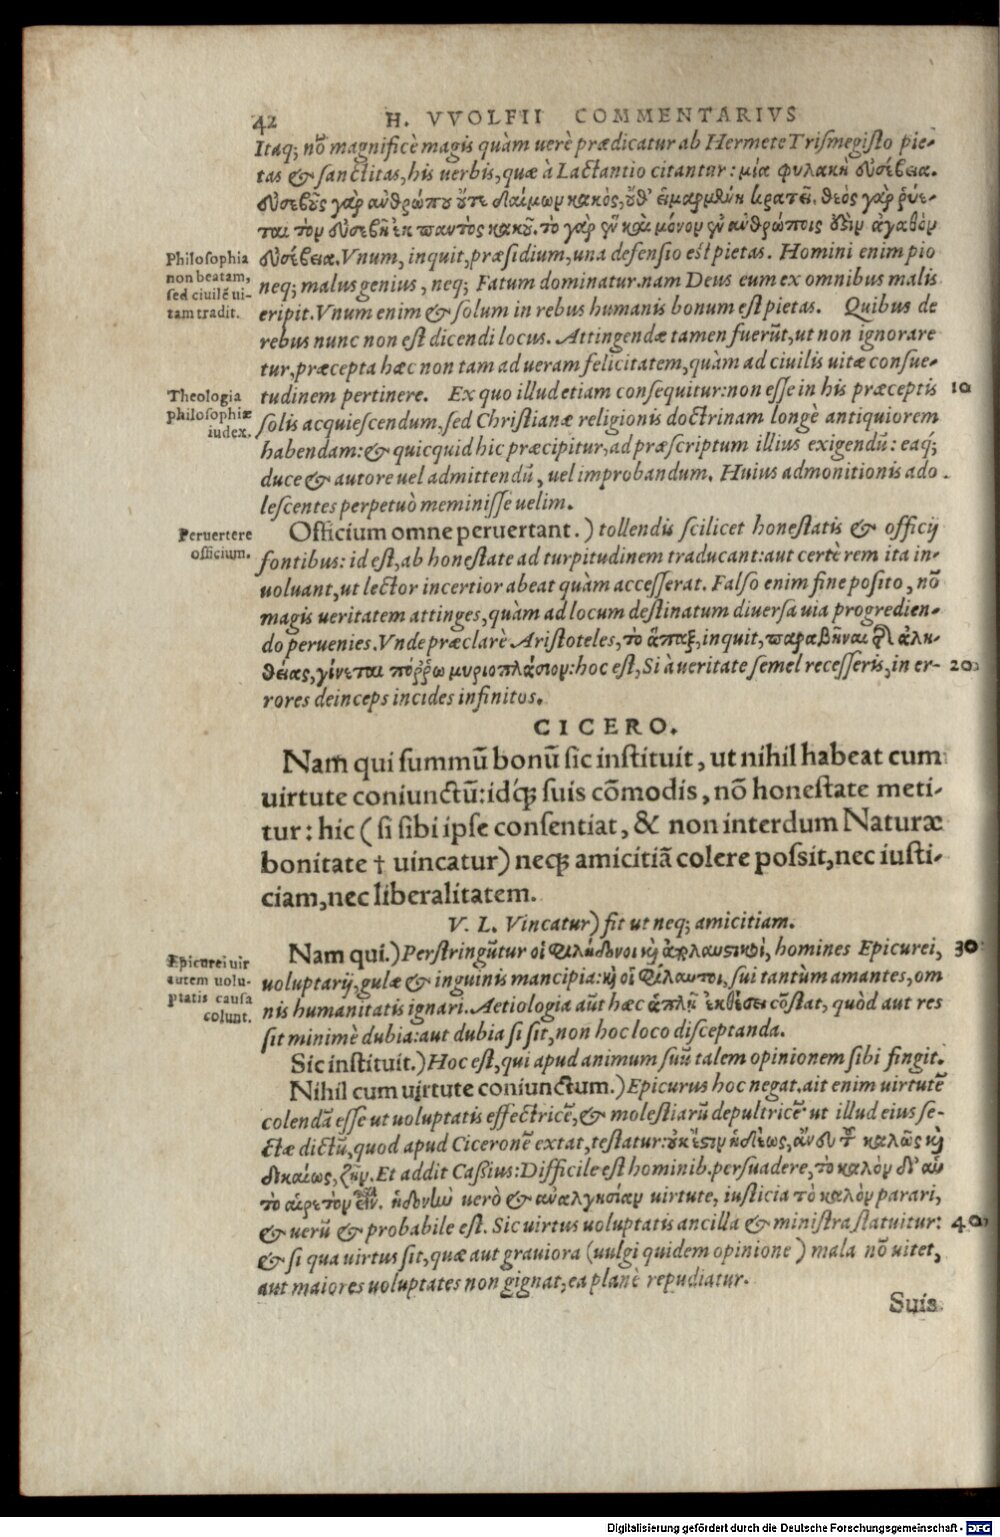 42 H. VVOLFII COMMENTARIVS
Itaq; nõ magnificè magis quàm uerè prædicatur ab Hermete Trismegisto pie-
tas & sanctitas, his uerbis, quæ à Lactantio citantur: μία φυλακὴ εὐσέβεια.
εὐσεβοῦς γὰρ ἀνθρώπου οὔτε δαίμων κακὸς, οὔθ' εἱμαρμένη κρατεῖ. θεὸς γὰρ ῥύε-
ται τὸν εὐσεβῆ ἐκ παντὸς κακοῦ. τὸ γὰρ ἓν καὶ μόνον ἐν ἀνθρώποις ἐστὶν ἀγαθὸν
εὐσέβεια. Vnum, inquit, præsidium, una defensio est pietas. Homini enim pio
Philosophia
non beatam,
sed ciuilẽ ui-
tam tradit.
neq; malus genius, neq; Fatum dominatur. nam Deus eum ex omnibus malis
eripit. Vnum enim & solum in rebus humanis bonum est pietas. Quibus de
rebus nunc non est dicendi locus. Attingendæ tamen fuerũt, ut non ignorare
tur, præcepta hæc non tam ad ueram felicitatem, quàm ad ciuilis uitæ consue-
tudinem pertinere. Ex quo illud etiam consequitur: non esse in his præceptis 10
Theologia
philosophiæ
iudex.
solis acquiescendum, sed Christianæ religionis doctrinam longè antiquiorem
habendam: & quicquid hic præcipitur, ad præscriptum illius exigendũ: eaq;
duce & autore uel admittendũ, uel improbandum. Huius admonitionis ado
lescentes perpetuò meminisse uelim.
Officium omne peruertant.) tollendis scilicet honestatis & officij
Peruertere
officium.
fontibus: id est, ab honestate ad turpitudinem traducant: aut certè rem ita in-
uoluant, ut lector incertior abeat quàm accesserat. Falso enim fine posito, nõ
magis ueritatem attinges, quàm ad locum destinatum diuersa uia progredien-
do peruenies. Vnde præclarè Aristoteles, τὸ ἅπαξ, inquit, παραβῆναι τῆς ἀλη-
θείας, γίνεται πόῤῥω μυριοπλάσιον: hoc est, Si à ueritate semel recesseris, in er- 20
rores deinceps incides infinitos.
CICERO.
Nam qui summũ bonũ sic instituit, ut nihil habeat cum
uirtute coniunctũ: idq́; suis cõmodis, nõ honestate meti-
tur: hic (si sibi ipse consentiat, & non interdum Naturæ
bonitate † uincatur) neq; amicitiã colere possit, nec iusti-
ciam, nec liberalitatem.
V. L. Vincatur) fit ut neq; amicitiam.
Nam qui.) Perstringũtur οἱ φιλήδονοι κὶ ἀπολαυστικοὶ, homines Epicurei, 30
Epicurei uir
tutem uolu-
ptatis causa
colunt.
uoluptarij, gulæ & inguinis mancipia: κὶ οἱ φίλαυτοι, sui tantùm amantes, om
nis humanitatis ignari. Aetiologia aũt hæc ἁπλῇ ἐκθέσει cõstat, quòd aut res
sit minimè dubia: aut dubia si sit, non hoc loco disceptanda.
Sic instituit.) Hoc est, qui apud animum suũ talem opinionem sibi fingit.
Nihil cum uirtute coniunctum.) Epicurus hoc negat. ait enim uirtutẽ
colendã esse ut uoluptatis effectricẽ, & molestiarũ depultricẽ ut illud eius se-
ctæ dictũ, quod apud Ciceronẽ extat, testatur: οὐκ ἔστιν ἡδέως, ἄνευ τοῦ καλῶς κὶ
δικαίως, ζῆν. Et addit Cassius: Difficile est hominib. persuadere, τὸ καλὸν δι' αὑ
τὸ αἱρετὸν εἶναι. ἡδονὴν uerò & ἀναλγησίαν uirtute, iusticia τὸ καλὸν parari,
& uerũ & probabile est. Sic uirtus uoluptatis ancilla & ministra statuitur: 40
& si qua uirtus sit, quæ aut grauiora (uulgi quidem opinione) mala nõ uitet,
aut maiores uoluptates non gignat, ea planè repudiatur.
Suis
Digitalisierung gefördert durch die Deutsche Forschungsgemeinschaft - DFG